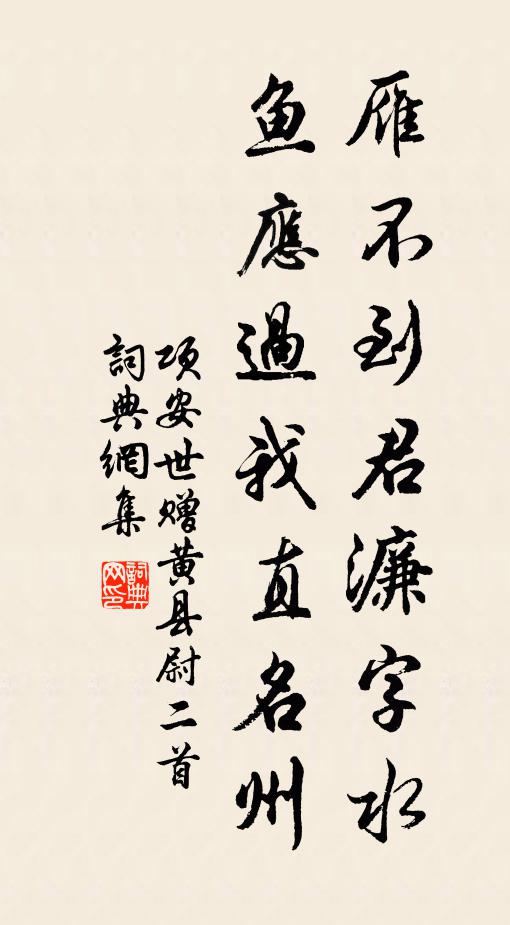 雁不到君濂字水
鱼應過我直名州
项安世赠黄县尉二首
詞典網集
詞典网印